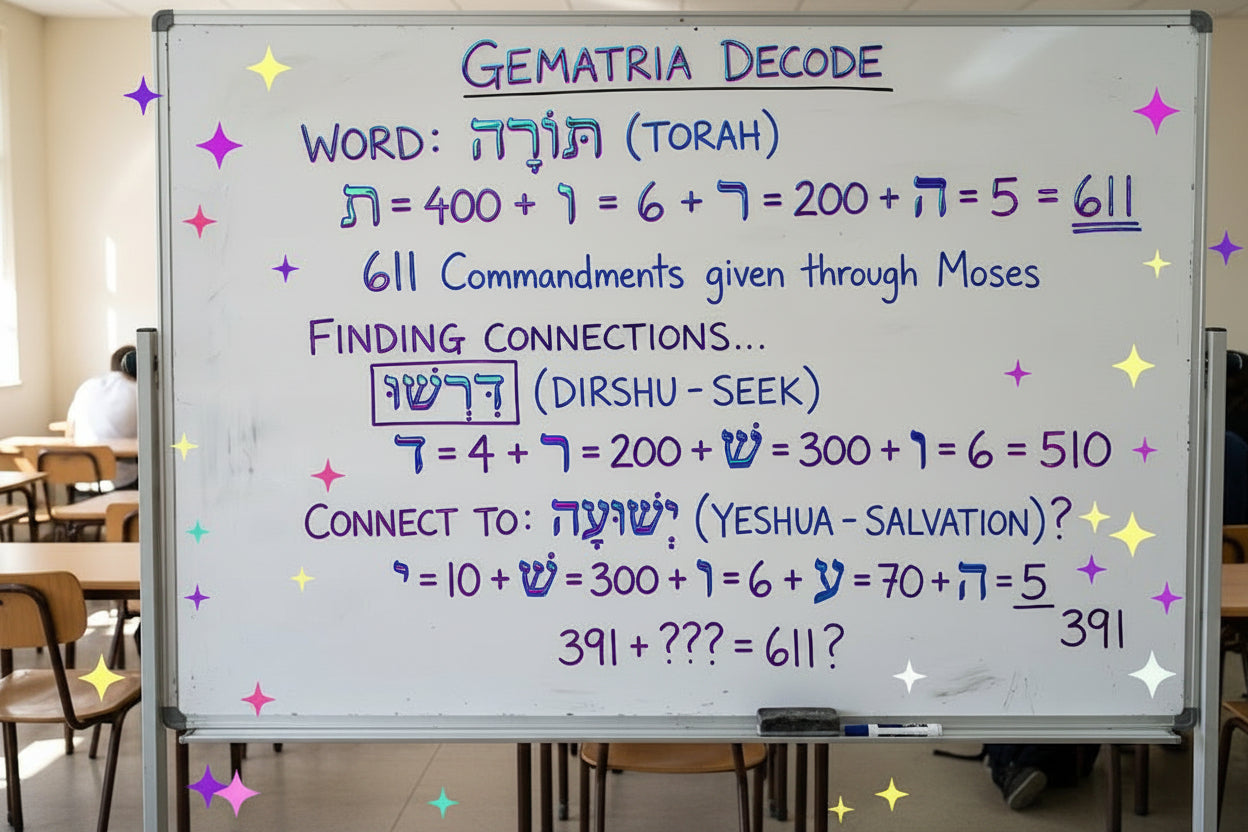 GEMATRIA DECODE
WORD: תּוֹרָה (TORAH)
ת = 400 + ו = 6 + ר = 200 + ה = 5 = 611
611 Commandments given through Moses
FINDING CONNECTIONS...
דִּרְשׁוּ (DIRSHU - SEEK)
ד = 4 + ר = 200 + שׁ = 300 + ו = 6 = 510
CONNECT TO: יְשׁוּעָה (YESHUA - SALVATION)?
י = 10 + שׁ = 300 + ו = 6 + ע = 70 + ה = 5
391
391 + ??? = 611?